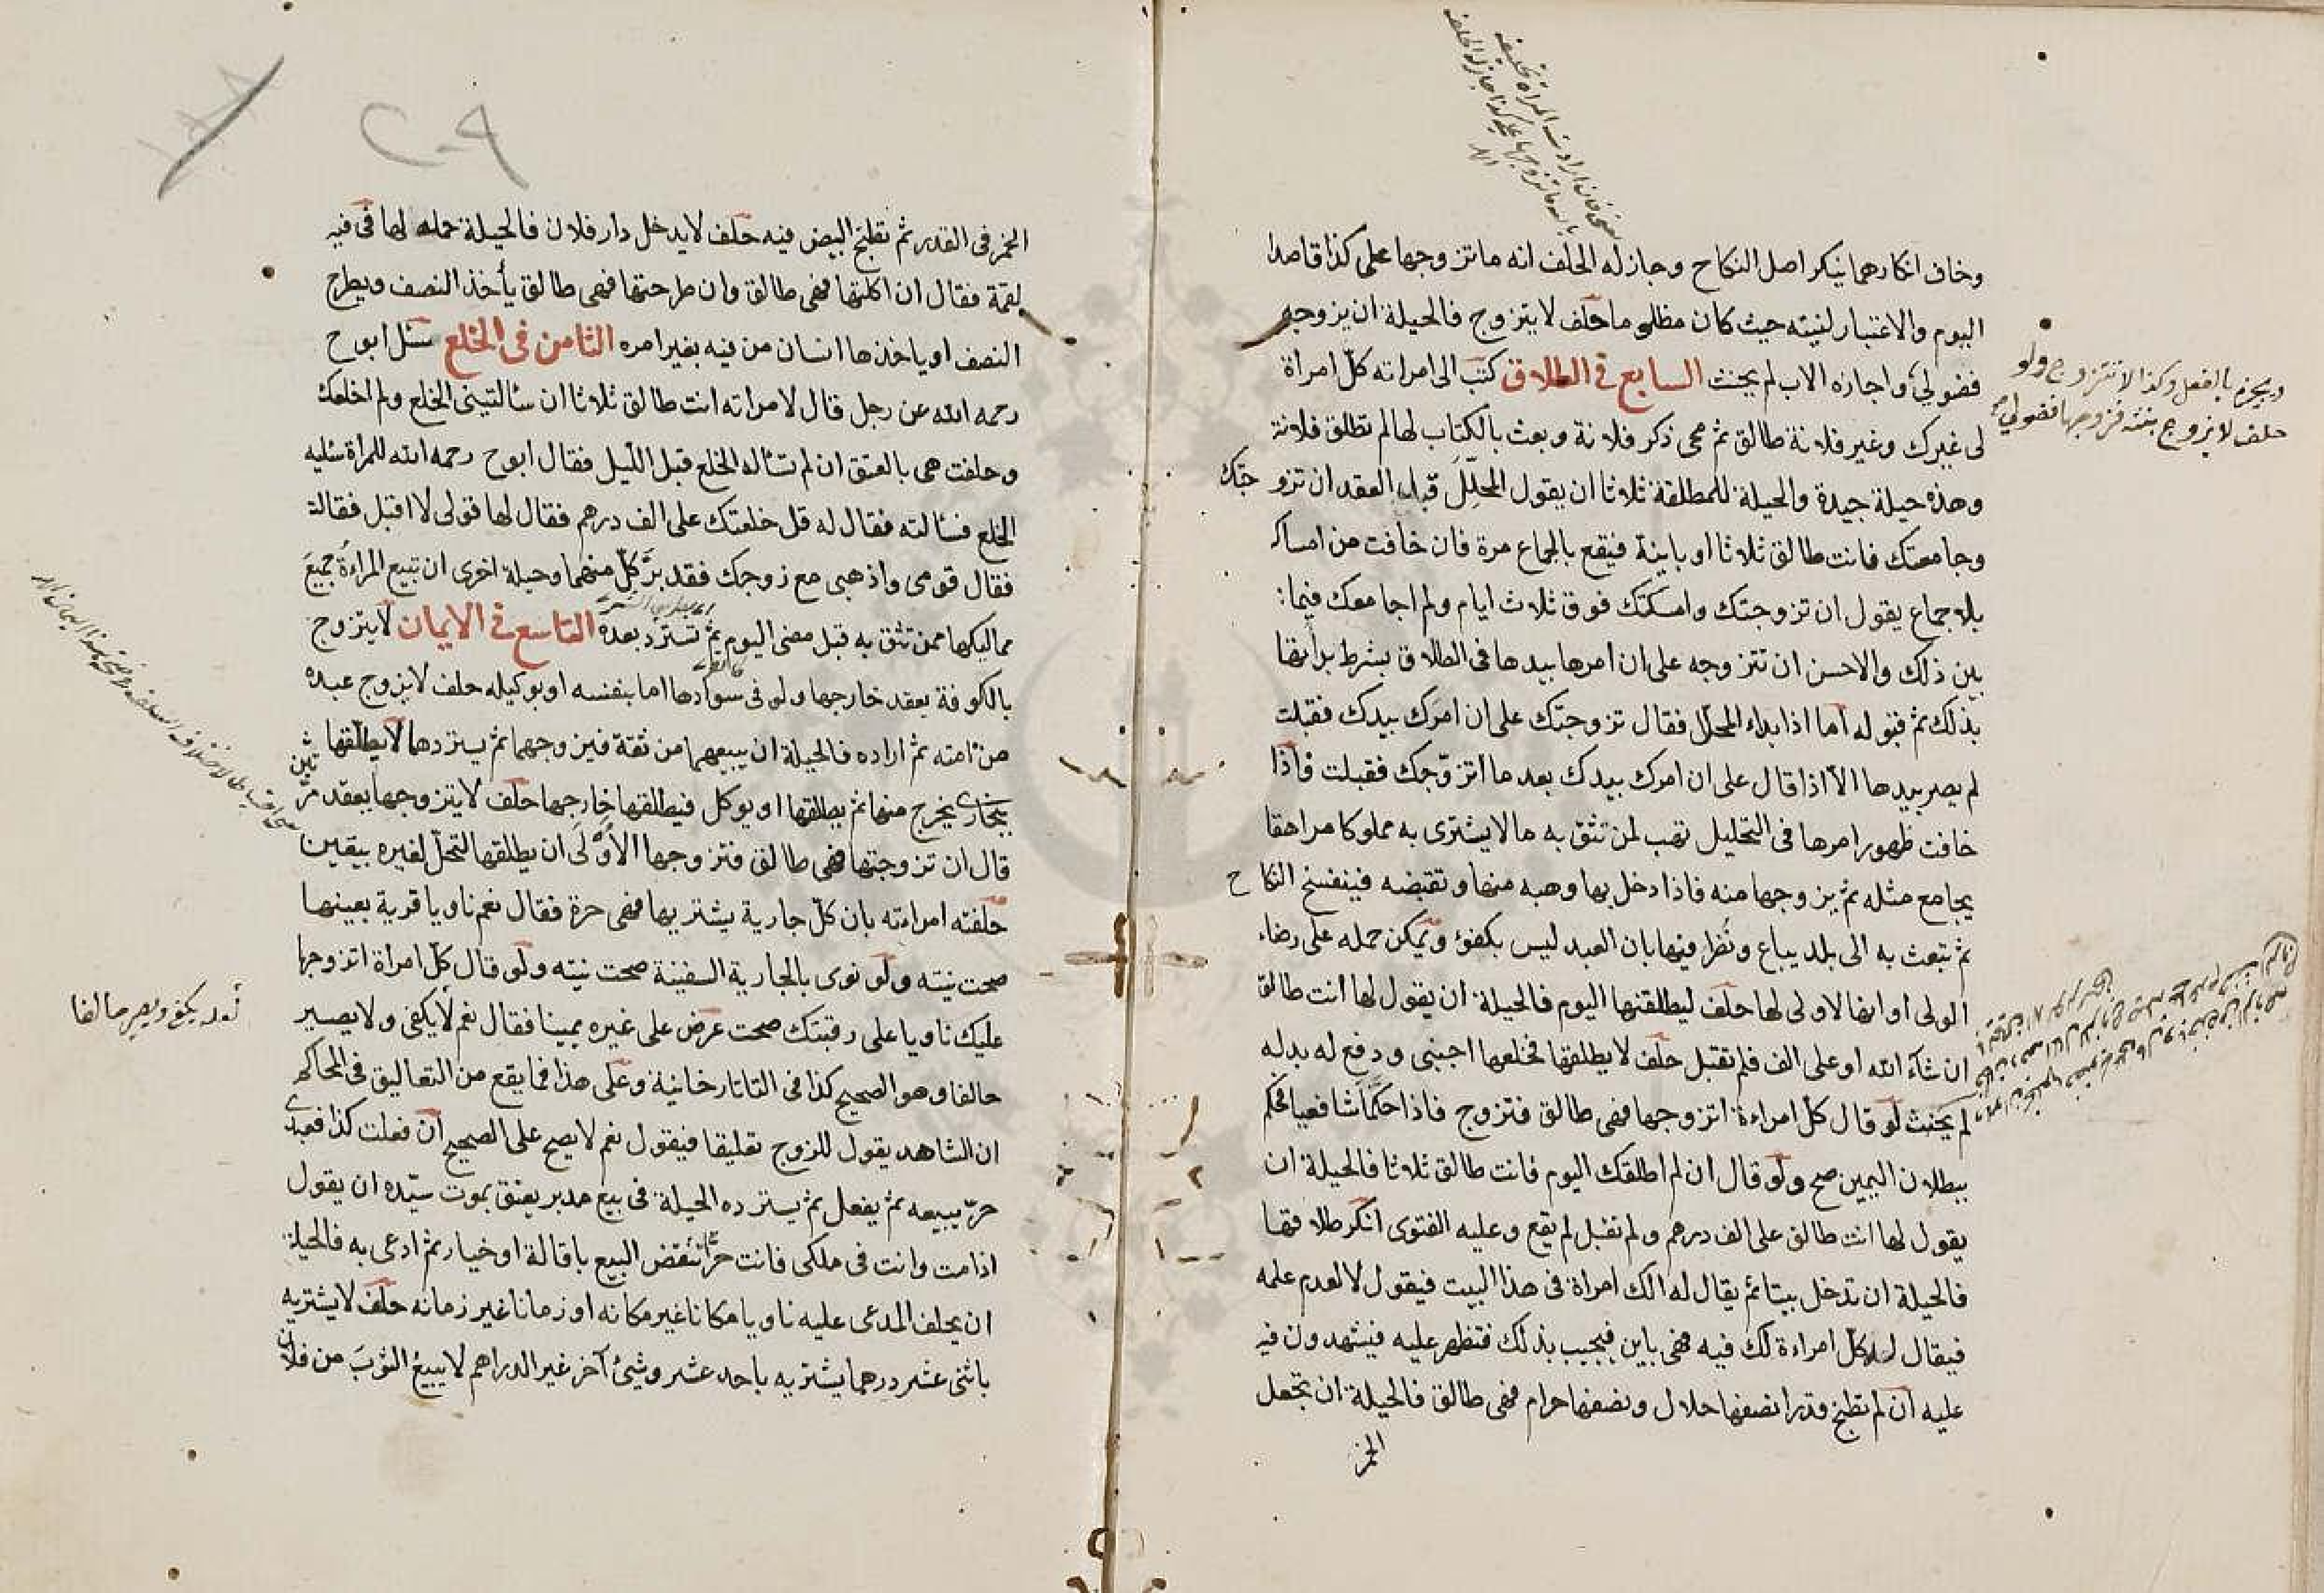 وخاف انكارهما ينكر اصل النكاح وجاز له الحلف انه ما تزوجها على كذا قاصدا
اليوم والاعتبار لنيته حيث كان مظلوما حلف لا يتزوج فالحيلة ان يزوجه
فضولي واجازه الاب لم يحنث السابع في الطلاق كتب الى امراته كل امراة
لى غيرك وغير فلانة طالق ثم محى ذكر فلانة وبعث بالكتاب لها لم تطلق فلانة
وهذه حيلة جيدة والحيلة للمطلقة ثلاثا ان يقول المحلل قبل العقد ان تزوجتك
وجامعتك فانت طالق ثلاثا او باينة فيقع بالجماع مرة فان خافت من امساكه
بلا جماع يقول ان تزوجتك وامسكتك فوق ثلاث ايام ولم اجامعك فيما
بين ذلك والاحسن ان تتزوجه على ان امرها بيدها في الطلاق بشرط بدايتها
بذلك ثم قبوله اما اذا بداء المحلل فقال تزوجتك على ان امرك بيدك فقبلت
لم يصر بيدها الا اذا قال على ان امرك بيدك بعد ما اتزوجك فقبلت فاذا
خافت ظهور امرها في التحليل تهب لمن تثق به ما لا يشترى به مملوكا مراهقا
يجامع مثله ثم يزوجها منه فاذا دخل بها وهبه منها وتقبضه فينفسخ النكاح
ثم تبعث به الى بلد يباع ونظر فيها بان العبد ليس بكفؤ ويمكن حمله على رضاء
الولى او انها لا ولى لها حلف ليطلقنها اليوم فالحيلة ان يقول لها انت طالق
ان شاء الله او على الف فلم تقبل حلف لا يطلقها فخلعها اجنبى ودفع له بدله
لم يحنث لو قال كل امراءة اتزوجها فهى طالق فتزوج فاذا حكما شافعيا فحكم
ببطلان اليمين صح ولو قال ان لم اطلقك اليوم فانت طالق ثلاثا فالحيلة ان
يقول لها انت طالق على الف درهم ولم تقبل لم يقع وعليه الفتوى انكر طلاقها
فالحيلة ان تدخل بيتا ثم يقال له الك امراة في هذا البيت فيقول لا لعدم علمه
فيقال له كل امراءة لك فيه فهى باين فيجيب بذلك فتظهر عليه فيشهدون فيه
عليه ان لم تطبخ قدرا نصفها حلال ونصفها حرام فهى طالق فالحيلة ان تجعل
الخمر
ويجيزه بالفعل وكذا لا تتزوج ولو
حلف لا يزوج بنته فزوجها فضولي
٢٩
الخمر في القدر ثم تطبخ البيض فيه حلف لا يدخل دار فلان فالحيلة حمله لها في فيه
لقمة فقال ان اكلتها فهى طالق وان طرحتها فهى طالق يأخذ النصف ويطرح
النصف او ياخذها انسان من فيه بغير امره الثامن في الخلع سئل ابو ح
رحمه الله عن رجل قال لامراته انت طالق ثلاثا ان سألتينى الخلع ولم اخلعك
وحلفت هى بالعتق ان لم تسئاله الخلع قبل الليل فقال ابو ح رحمه الله للمراة سليه
الخلع فسئالته فقال له قل خلعتك على الف درهم فقال لها قولى لا اقبل فقالت
فقال قومى واذهبى مع زوجك فقد بر كل منهما وحيلة اخرى ان تبيع المراءة جميع
مماليكها ممن تثق به قبل مضى اليوم ثم تسترد بعده التاسع في الايمان لا يتزوج
بالكوفة يعقد خارجها ولو في سوادها اما بنفسه او بوكيله حلف لا يزوج عبده
من امته ثم اراده فالحيلة ان يبيعهما من ثقة فيزوجهما ثم يستردهما لا يطلقها
ببخارى يخرج منها ثم يطلقها او يوكل فيطلقها خارجها حلف لا يتزوجها يعقد مرتين
قال ان تزوجتها فهى طالق فتزوجها الاولى ان يطلقها لتحل لغيره بيقين
حلفته امراءته بان كل جارية يشتريها فهى حرة فقال نعم ناويا قرية بعينها
صحت نيته ولو نوى بالجارية السفينة صحت نيته ولو قال كل امراة اتزوجها
عليك ناويا على رقبتك صحت عرض على غيره يمينا فقال نعم لا يكفى ولا يصير
حالفا وهو الصحيح كذا في التاتارخانية وعلى هذا فما يقع من التعاليق في المحاكم
ان الشاهد يقول للزوج تعليقا فيقول نعم لا يصح على الصحيح ان فعلت كذا فعبدى
حر يبيعه ثم يفعل ثم يسترده الحيلة في بيع مدبر يعتق بموت سيده ان يقول
اذا مت وانت في ملكى فانت حر تنقض البيع باقالة او خيار ثم ادعى به فالحيلة
ان يحلف المدعى عليه ناويا مكانا غير مكانه او زمانا غير زمانه حلف لا يشتريه
باثنى عشر درهما يشتريه باحد عشر وشئ آخر غير الدراهم لا يبيع الثوب من فلان
يكفى ويصير حالفا